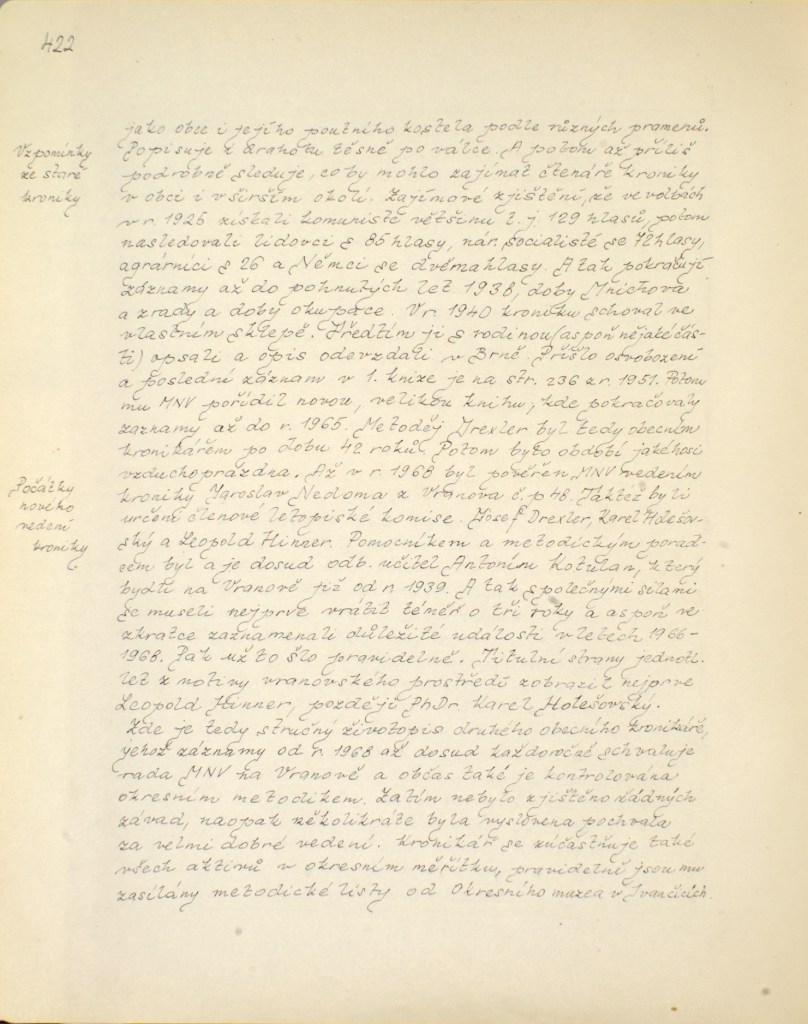 422
jako obce i jejího poutního kostela podle různých pramenů.
Vzpomínky
ze staré
kroniky
Popisuje i drahotu těsně po válce. A potom až příliš
podrobně sleduje, co by mohlo zajímat čtenáře kroniky
v obci i v širším okolí. Zajímavé zjištění, že ve volbách
v r. 1925 získali komunisté většinu t. j. 129 hlasů, potom
následovali lidovci s 85 hlasy, nár. socialisté se 72 hlasy,
agrárníci s 26 a Němci se dvěma hlasy. A tak pokračují
záznamy až do pohnutých let 1938, doby Mnichova
a zrady a doby okupace. V r. 1940 kroniku schoval ve
vlastním sklepě. Předtím ji s rodinou (aspoň nějaké čás-
ti) opsali a opis odevzdali v Brně. Přišlo osvobození
a poslední záznam v 1. knize je na str. 236 z r. 1951. Potom
mu MNV pořídil novou, velikou knihu, kde pokračovaly
záznamy až do r. 1965. Metoděj Drexler byl tedy obecním
kronikářem po dobu 42 roků. Potom bylo období jakéhosi
vzduchoprázdna. Až v r. 1968 byl pověřen MNV vedením
Počátky
nového
vedení
kroniky
kroniky Jaroslav Nedoma z Vranova č. p 48. Taktéž byli
určeni členové letopiské komise. Josef Drexler, Karel Holešov-
ský a Leopold Hinner. Pomocníkem a metodickým porad-
cem byl a je dosud odb. učitel Antonín Kotulan, který
bydlí na Vranově již od r. 1939. A tak společnými silami
se museli nejprve vrátit téměř o tři roky a aspoň ve
zkratce zaznamenali důležité události v letech 1966-
1968. Pak už to šlo pravidelně. Titulní strany jednotl.
let z motivy vranovského prostředí zobrazil nejprve
Leopold Hinner, později PhDr. Karel Holešovský.
Zde je tedy stručný životopis druhého obecního kronikáře,
jehož záznamy od r. 1968 až dosud každoročně schvaluje
rada MNV na Vranově a občas také je kontrolována
okresním metodikem. Zatím nebylo zjištěno žádných
závad, naopak několikráte byla vyslovena pochvala
za velmi dobré vedení. Kronikář se zúčastňuje také
všech aktivů v okresním měřítku, pravidelně jsou mu
zasílány metodické listy od Okresního muzea v Ivančicích.